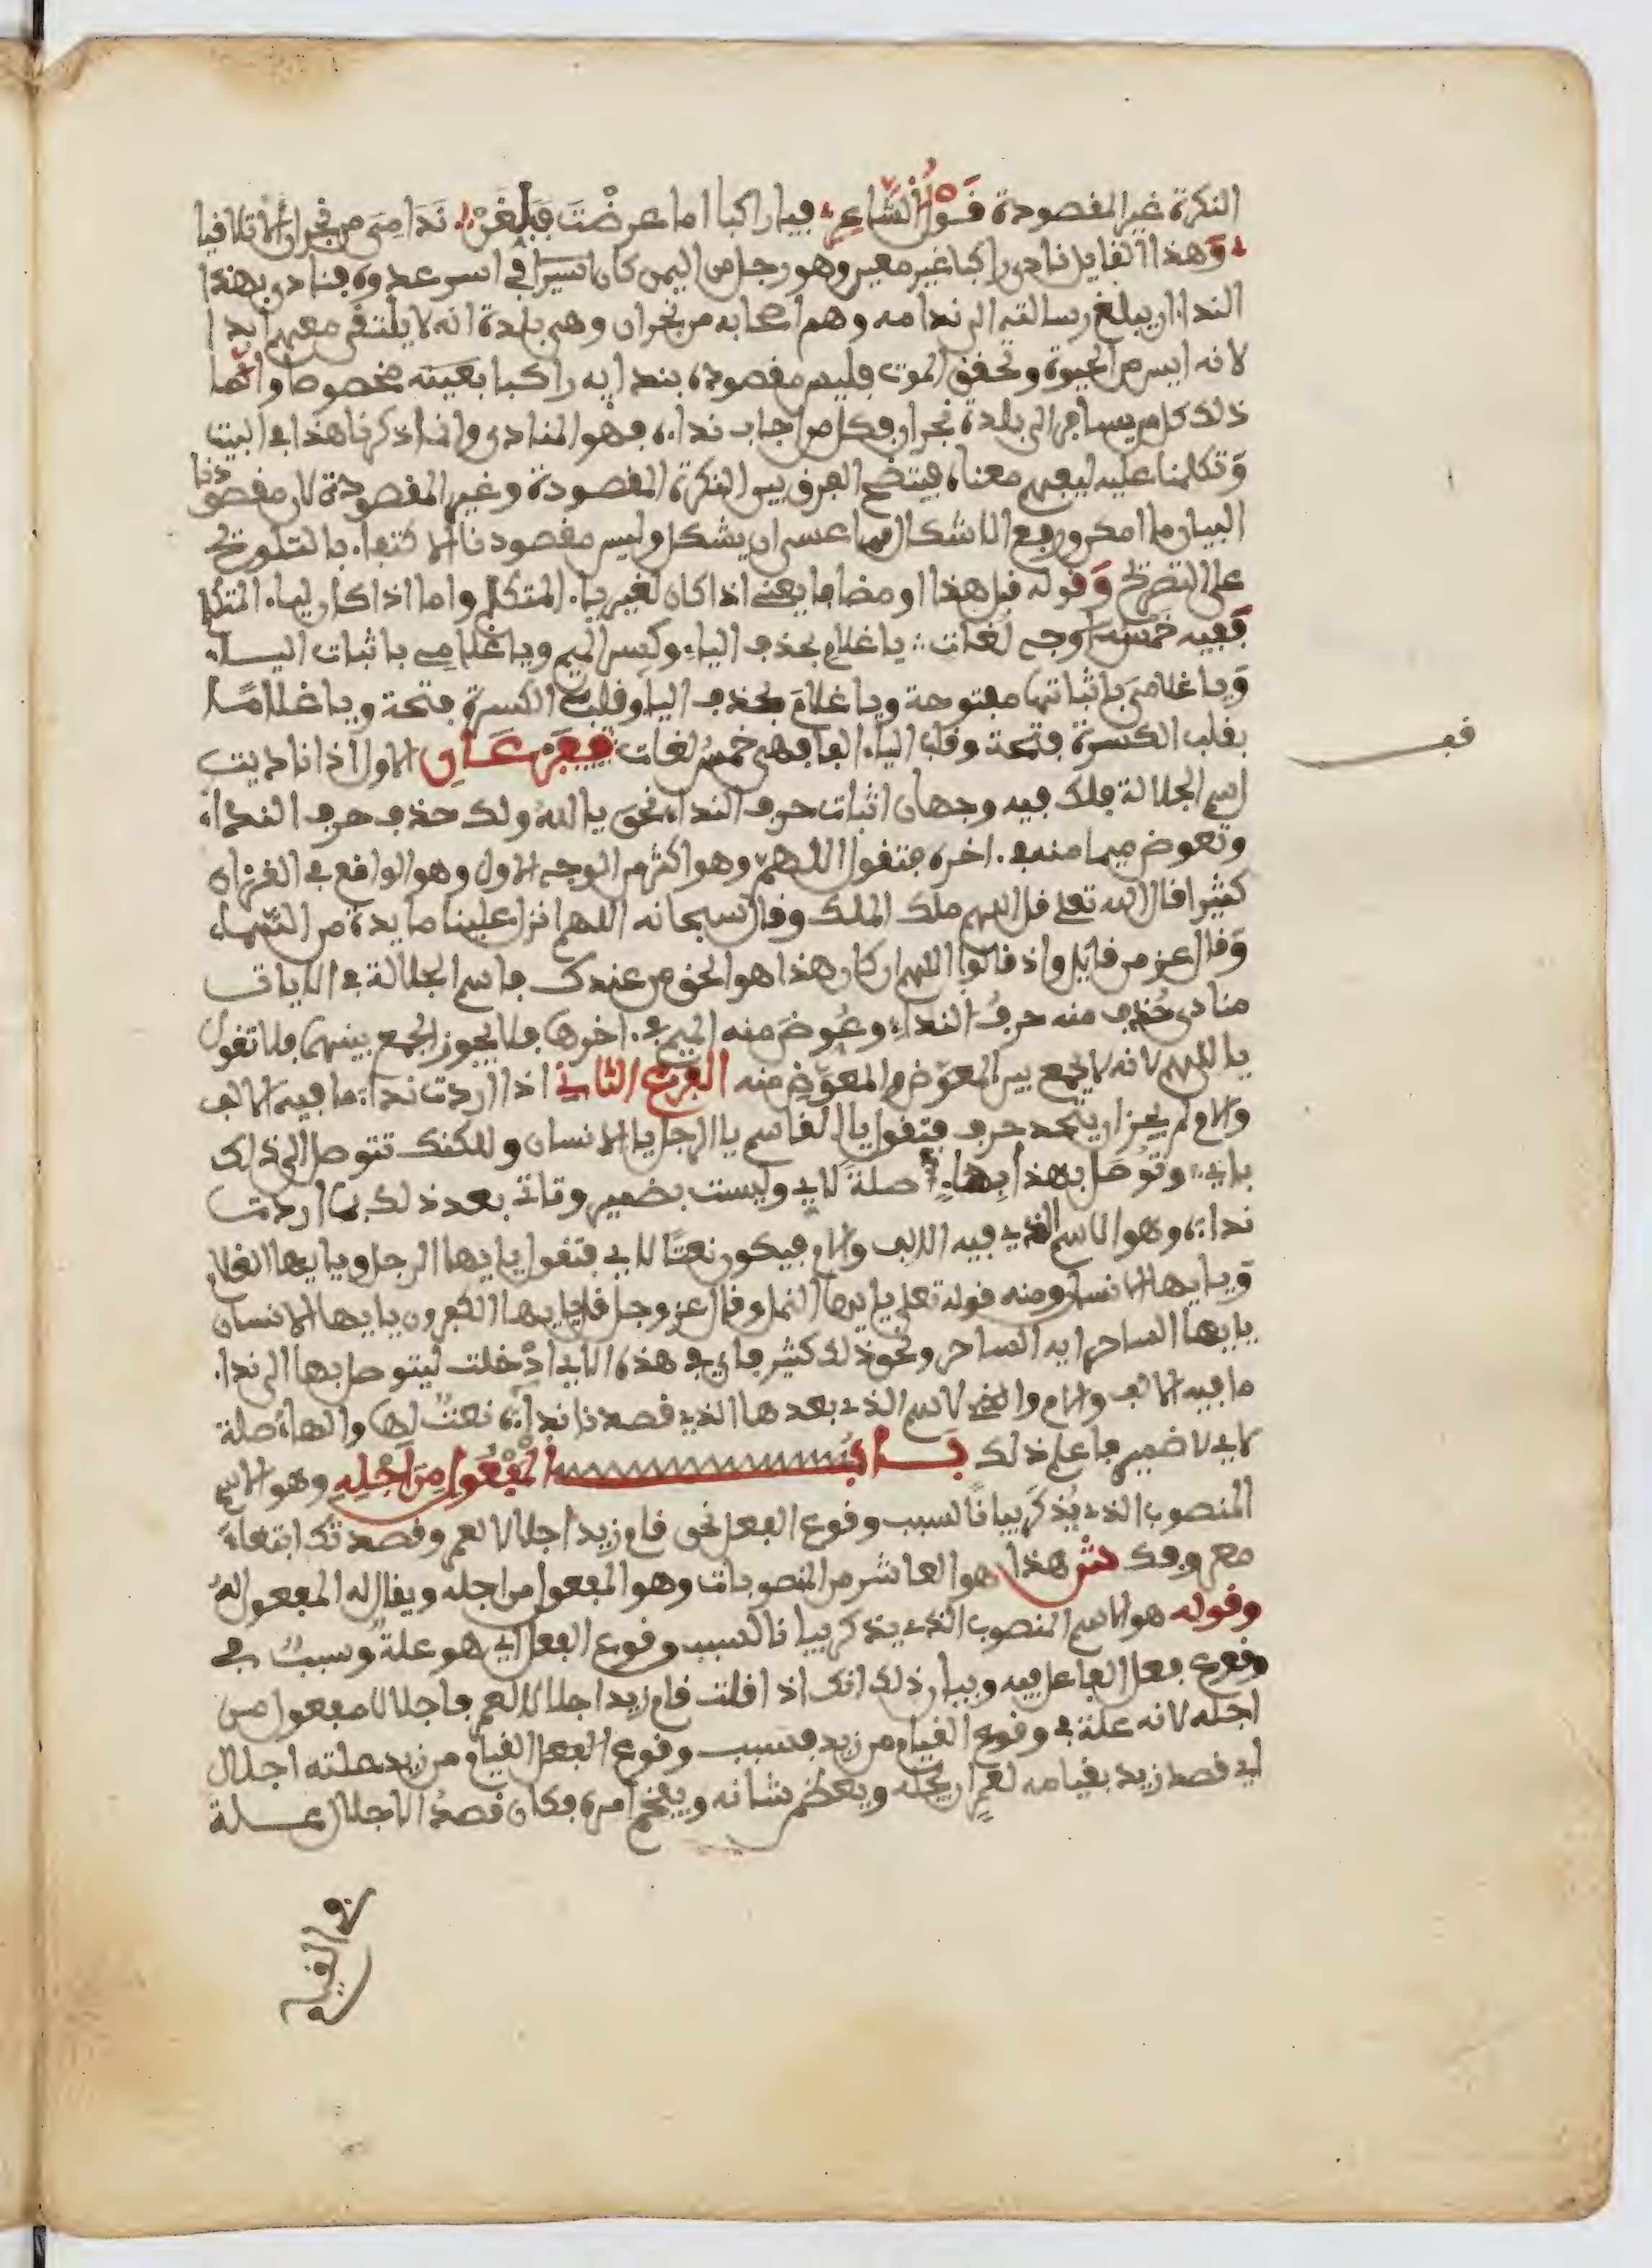 النكرة غير المقصودة قول الشاعر فيا راكبا اما عرضت فبلغن نداماي من نجران ألا تلاقيا
وهذا القايل نادى راكبا غير معين وهو رجل من اليمن كان أسيرا في اسر عدوه فنادى بهذا
النداء ان يبلغ رسالته الى ندامه وهم اصحابه من نجران وهي بلدة انه لا يلتقي معهم ابدا
لانه ايس من الحيوة وتحقق الموت فليس مقصوده بندايه راكبا بعينه مخصوصا وانما
ذلك كل من يسافر الى بلدة نجران فكل من اجاب نداءه فهو المنادى وانما ذكرنا هذا في البيت
وتكلمنا عليه ليفهم معناه فيتضح الفرق بين النكرة المقصودة وغير المقصودة لان مقصودنا
البيان ما امكن ورفع الاشكال فيما عسى ان يشكل وليس مقصودنا الاكتفاء بالتلويح
على التصريح وقوله قبل هذا او مضافا يعني اذا كان لغير ياء المتكلم واما اذا كان لياء المتكلم
ففيه خمسة أوجه لغات يا غلام بحذف الياء وكسر الميم ويا غلامي باثبات الياء
ويا غلامي باثباتها مفتوحة ويا غلام بحذف الياء وقلب الكسرة فتحة ويا غلاما
بقلب الكسرة فتحة وقلب الياء الفا فهي خمس لغات فرعان الاول اذا ناديت
قف
اسم الجلالة فلك فيه وجهان اثبات حرف النداء نحو يا الله ولك حذف حرف النداء
وتعوض ميما منه في اخره فتقول اللهم وهو اكثر من الوجه الاول وهو الواقع في القرءان
كثيرا قال الله تعلى قل اللهم ملك الملك وقال سبحانه اللهم انزل علينا مايدة من السماء
وقال عز من قايل واذ قالوا اللهم ان كان هذا هو الحق من عندك فاسم الجلالة في الايات
منادى حذف منه حرف النداء وعوض منه الميم في اخرها فلا يجوز الجمع بينهما فلا تقول
يا اللهم لانه لا يجمع بين المعوض والمعوض منه الفرع الثاني اذا اردت نداء ما فيه الالف
والام لم يجز ان ينحد حرف فتقول يا القاسم يا الرجل يا الانسان وللكنك تتوصل الى ذلك
باي وتوصل بهذا بها صلة لاي وليست بضمير وتاتي بعد ذلك بما اردت
نداءه وهو الاسم الذي فيه الالف والام فيكون نعتا لاي فتقول يا يها الرجل ويا يها الغلام
ويا يها الانسان ومنه قوله تعلى يا يها النمل وقال عز وجل قل يا يها الكفرون يا يها الانسان
يا يها الساحر ايه الساحر ونحو ذلك كثير فاي في هذه الاي ادخلت ليتوصل بها الى نداء
ما فيه الالف والام والاسم الذي بعدها الذي قصدنا نداءه نعت لها والهاء صلة
لاي لا ضمير فاعلم ذلك باب المفعول من اجله وهو الاسم
المنصوب الذي يذكر بيانا لسبب وقوع الفعل نحو قام زيد اجلالا لعمرو وقصدتك ابتغاء
معروفك ش هذا هو العاشر من المنصوبات وهو المفعول من اجله ويقال له المفعول له
وقوله هو الاسم المنصوب الذي يذكر بيانا لسبب وقوع الفعل اي هو علة وسبب في
وقوع فعل الفاعل فيه وبيان ذلك انك اذا قلت قام زيد اجلالا لعمرو فاجلالا مفعول من
اجله لانه علة في وقوع القيام من زيد فسبب وقوع الفعل القيام من زيد علته اجلال
اي قصد زيد بقيامه لعمرو ان يجله ويعظم شانه ويفخم امره فكان قصد الاجلال علة